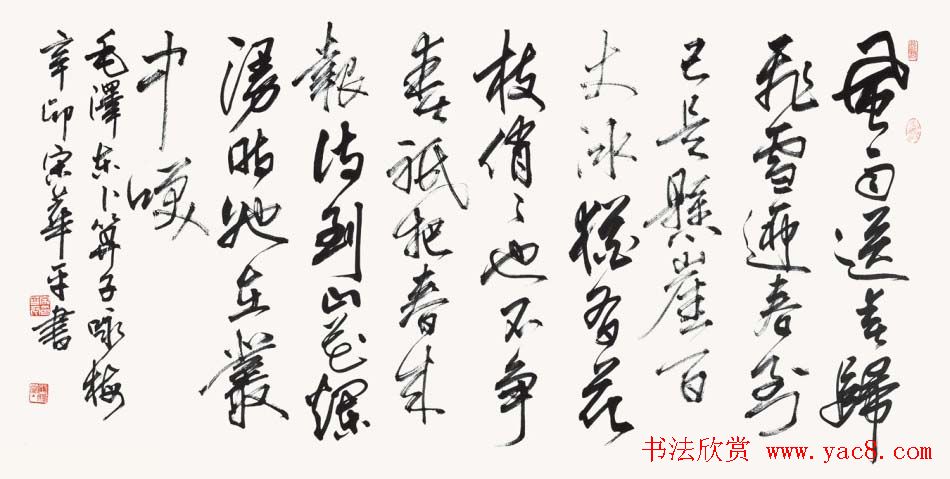 風雨送春歸
飛雪迎春到
已是懸崖百
丈冰猶有花
枝俏々也不爭
春祇把春來
報待到山花爛
漫時她在叢
中咲
毛澤東卜算子咏梅
辛卯宋華平書
书法欣赏 www.yac8.com